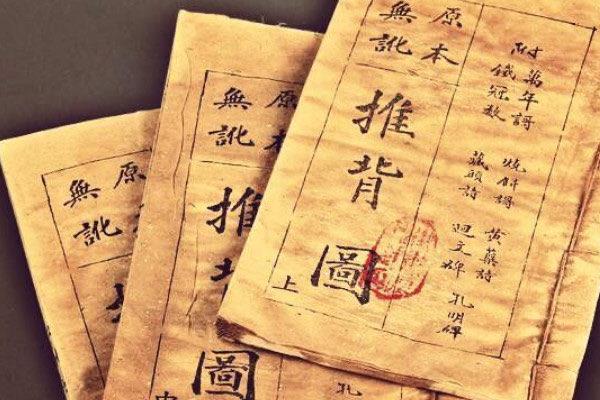 附
萬年謌 燒餅謌 黃蘗詩
鐵冠數 藏頭詩 迴文碑 孔明碑
原本
無訛
推背圖
上
原本
無訛
推背圖
孔
原
無訛